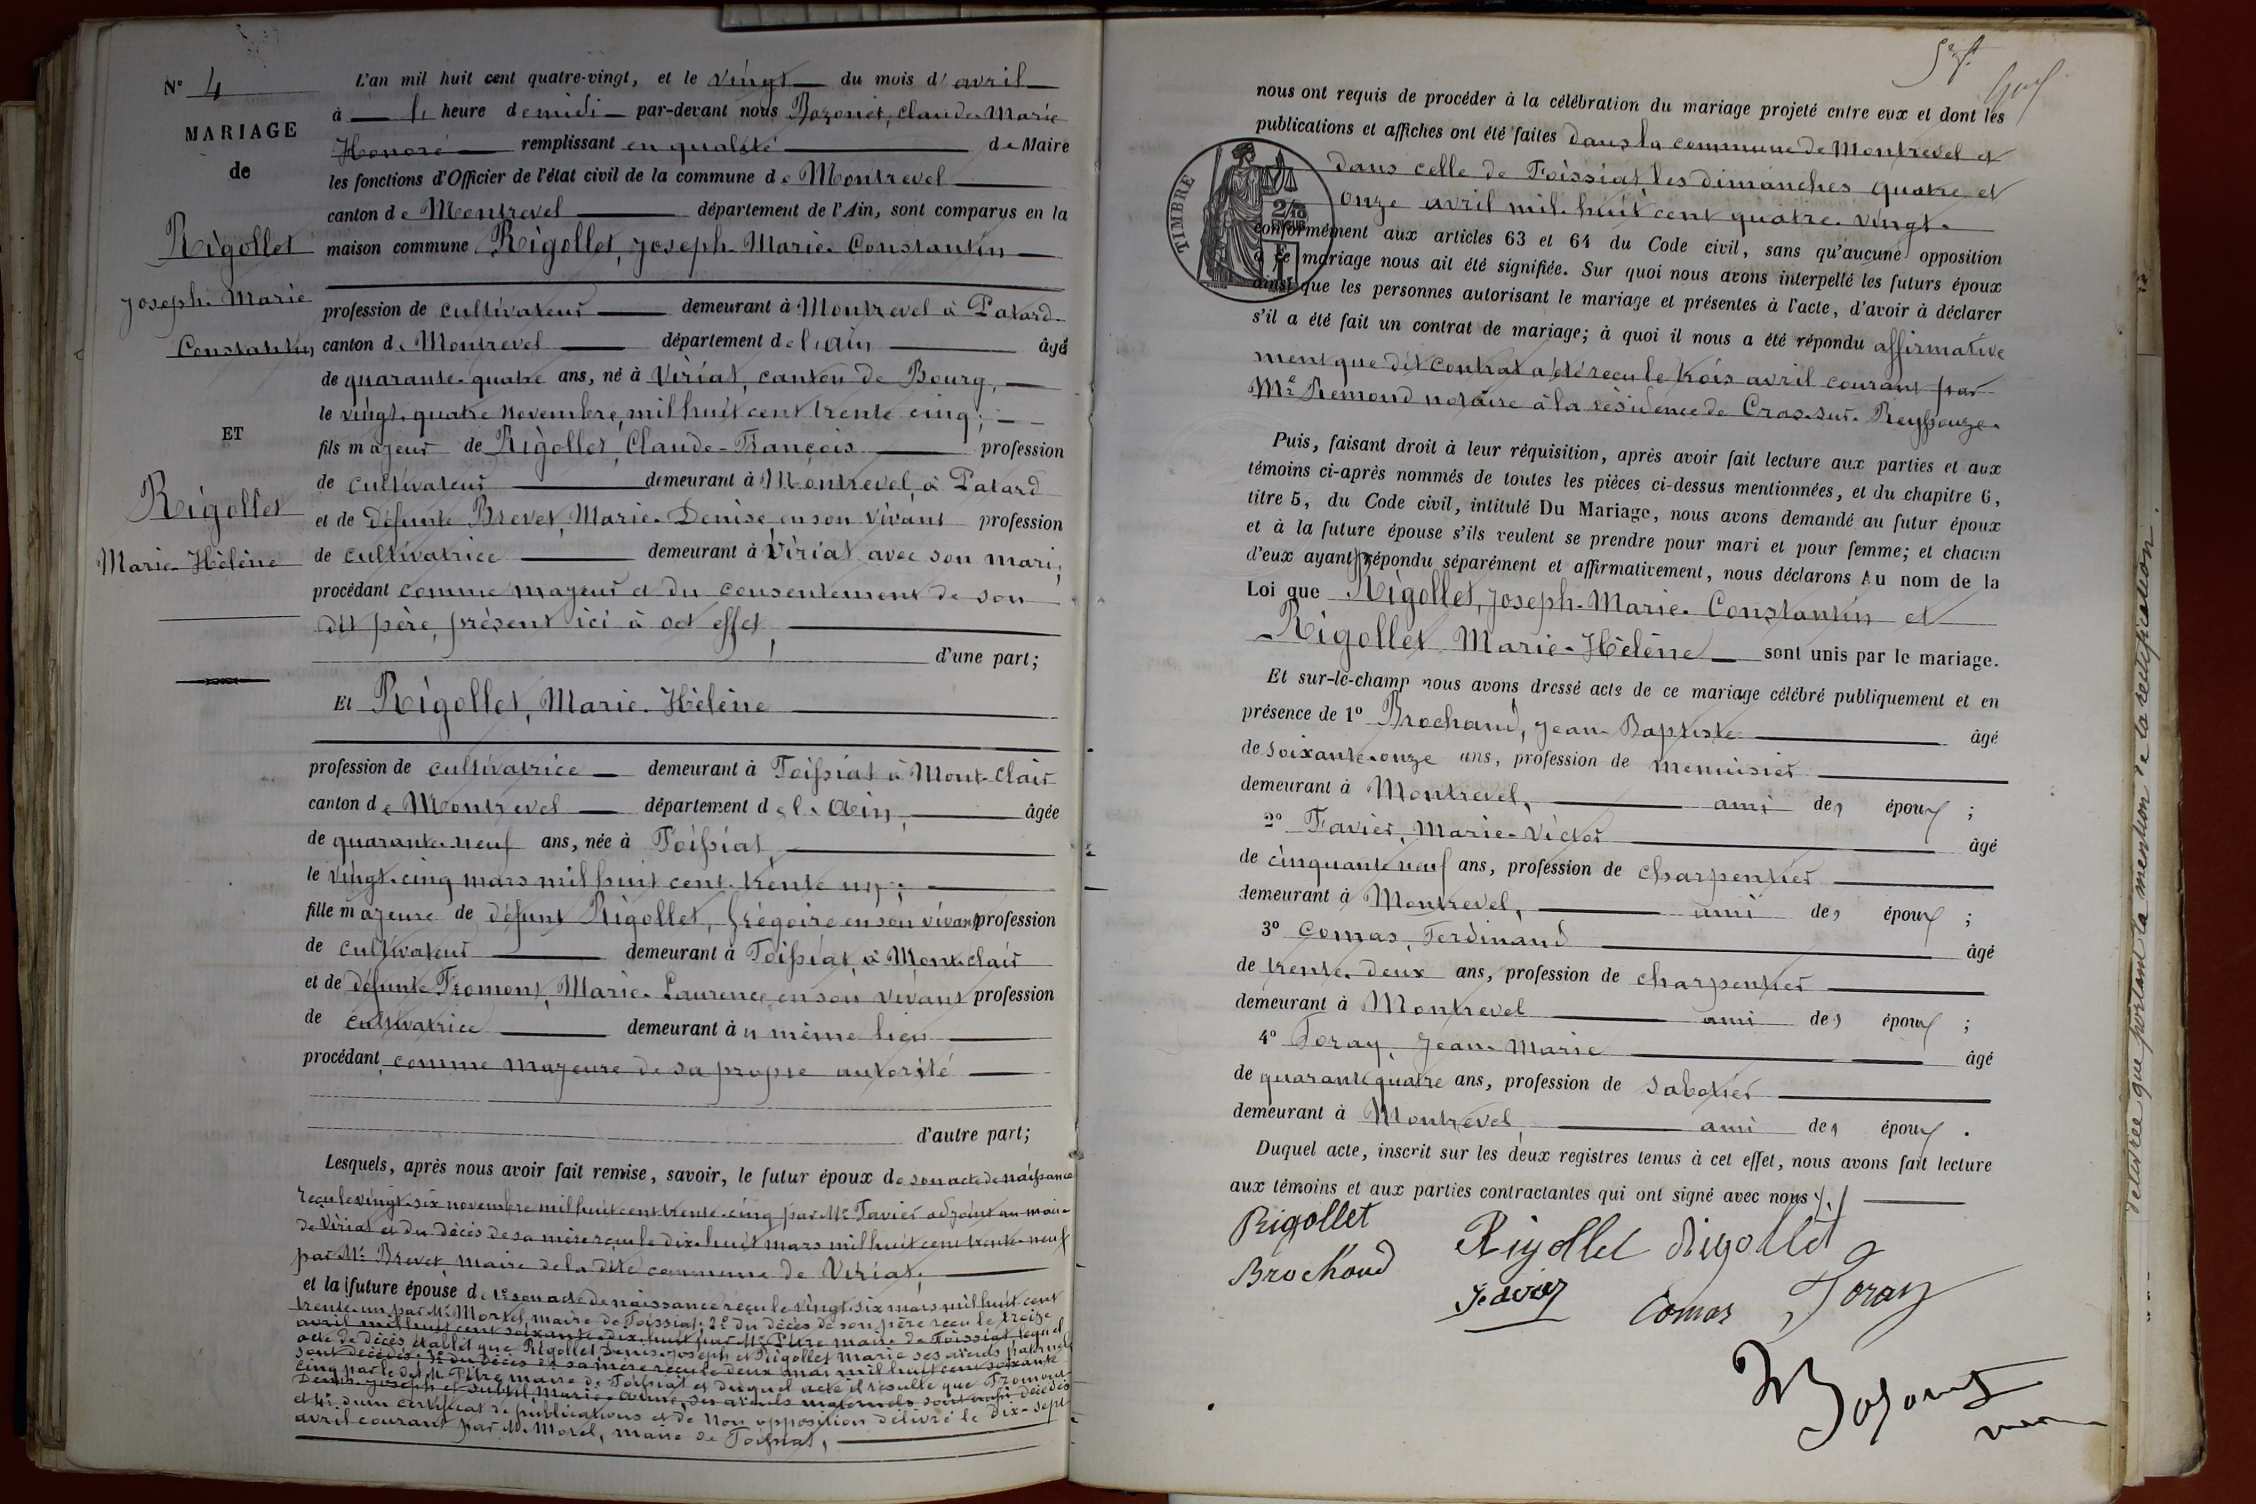 N° 4
MARIAGE
de
Rigollet
Joseph-Marie
Constantin
ET
Rigollet
Marie-Hélène
L'an mil huit cent quatre-vingt, et le vingt du mois d'avril
à heure de midi par-devant nous Bozonet, Claude-Marie
Honoré remplissant en qualité de Maire
les fonctions d'Officier de l'état civil de la commune de Montrevel
canton de Montrevel département de l'Ain, sont comparus en la
maison commune Rigollet, Joseph-Marie-Constantin
profession de cultivateur demeurant à Montrevel à Patard
canton de Montrevel département de l'ain âgé
de quarante-quatre ans, né à Viriat, canton de Bourg,
le vingt-quatre novembre, mil huit cent trente cinq;
fils majeur de Rigollet, Claude-François profession
de cultivateur demeurant à Montrevel, à Patard
et de défunte Brevet, Marie-Denise, en son vivant profession
de cultivatrice demeurant à Viriat avec son mari,
procédant comme majeur et du consentement de son
dit père, présent ici à cet effet,
d'une part;
Et Rigollet, Marie-Hélène
profession de cultivatrice demeurant à Foissiat à Mont-clair
canton de Montrevel département de l'Ain, âgée
de quarante-neuf ans, née à Foissiat,
le vingt-cinq mars mil huit cent-trente un;
fille majeure de défunt Rigollet, Grégoire en son vivant profession
de cultivateur demeurant à Foissiat, à Mont-clair
et de défunte Fromont, Marie-Laurence, en son vivant profession
de cultivatrice demeurant à même lieu
procédant comme majeure de sa propre autorité
d'autre part;
Lesquels, après nous avoir fait remise, savoir, le futur époux de son acte de naissance
reçu le vingt-six novembre mil huit cent trente-cinq par Mr Favier adjoint au maire
de Viriat et du décès de sa mère reçu le dix-huit mars mil huit cent trente-neuf
par Mr Brevet, maire de la dite commune de Viriat;
et la future épouse de 1° son acte de naissance reçu le vingt-six mars mil huit cent
trente-un par Mr Mortel, maire de Foissiat; 2° du décès de son père reçu le treize
avril mil huit cent soixante-dix-huit par Mr Pitre maire de Foissiat lequel
acte de décès établit que Rigollet Denis-Joseph et Rigollet Marie ses aïeuls paternels
sont décédés; 3° du décès de sa mère reçu le deux mai mil huit cent soixante
cinq par le dit Mr Pitre maire de Foissiat et duquel acte il résulte que Fromont
Denis-Joseph et Subtil Marie-Anne, ses aïeuls maternels sont aussi décédés
et 4° d'un certificat de publications et de non opposition délivré le dix-sept
avril courant par Mr Morel, maire de Foissiat,
nous ont requis de procéder à la célébration du mariage projeté entre eux et dont les
publications et affiches ont été faites dans la commune de Montrevel et
dans celle de Foissiat les dimanches quatre et
onze avril mil-huit cent quatre-vingt.
TIMBRE
conformément aux articles 63 et 64 du Code civil, sans qu'aucune opposition
à ce mariage nous ait été signifiée. Sur quoi nous avons interpellé les futurs époux
ainsi que les personnes autorisant le mariage et présentes à l'acte, d'avoir à déclarer
s'il a été fait un contrat de mariage; à quoi il nous a été répondu affirmative
ment que dit contrat a été reçu le trois avril courant par
Me Remond notaire à la résidence de Cras-sur-Reyssouze.
Puis, faisant droit à leur réquisition, après avoir fait lecture aux parties et aux
témoins ci-après nommés de toutes les pièces ci-dessus mentionnées, et du chapitre 6,
titre 5, du Code civil, intitulé Du Mariage, nous avons demandé au futur époux
et à la future épouse s'ils veulent se prendre pour mari et pour femme; et chacun
d'eux ayant répondu séparément et affirmativement, nous déclarons Au nom de la
Loi que Rigollet, Joseph-Marie-Constantin et
Rigollet Marie-Hélène sont unis par le mariage.
Et sur-le-champ nous avons dressé acte de ce mariage célébré publiquement et en
présence de 1° Brochand, Jean-Baptiste âgé
de soixante-onze ans, profession de menuisier
demeurant à Montrevel, ami des époux;
2° Favier, Marie-Victor âgé
de cinquante neuf ans, profession de charpentier
demeurant à Montrevel, ami des époux;
3° Comas, Ferdinand âgé
de trente-deux ans, profession de charpentier
demeurant à Montrevel ami des époux;
4° Foray, Jean-Marie âgé
de quarante quatre ans, profession de sabotier
demeurant à Montrevel, ami des époux.
Duquel acte, inscrit sur les deux registres tenus à cet effet, nous avons fait lecture
aux témoins et aux parties contractantes qui ont signé avec nous
Rigollet Rigollet Rigollet
Brochand Favier Comas Foray
Bozonet
délivrée que portant la mention de la rectification.